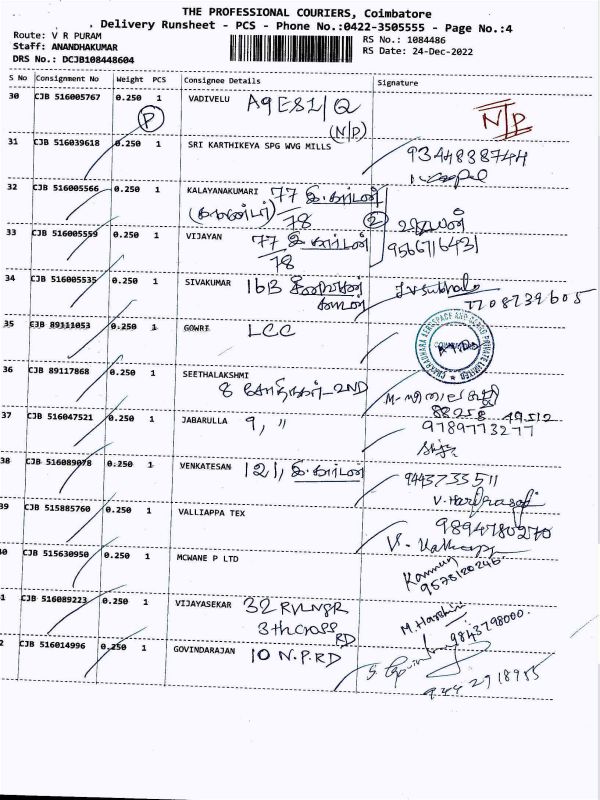 THE PROFESSIONAL COURIERS, Coimbatore
Delivery Runsheet - PCS - Phone No.:0422-3505555 - Page No.:4
Route: V R PURAM
RS No.: 1084486
Staff: ANANDHAKUMAR
RS Date: 24-Dec-2022
DRS No.: DCJB108448604
S No Consignment No Weight PCS Consignee Details Signature
30 CJB 516005767 0.250 1 VADIVELU A9ES1/Q
P (N/P) N/P
31 CJB 516039618 0.250 1 SRI KARTHIKEYA SPG WVG MILLS
9344838744
32 CJB 516005566 0.250 1 KALAYANAKUMARI 77 இ.காடன்
78
33 CJB 516005559 0.250 1 VIJAYAN 77 இ காடன்
78 9566711643
34 CJB 516005535 0.250 1 SIVAKUMAR 16B
35 CJB 89111053 0.250 1 GOWRI LCC
CHAKRADHARA AEROSPACE AND CARGO PRIVATE LIMITED
36 CJB 89117868 0.250 1 SEETHALAKSHMI
8 2ND
88258 49512
37 CJB 516047521 0.250 1 JABARULLA 9, "
9789773277
38 CJB 516089078 0.250 1 VENKATESAN 121, இ.காடன்
9443733511
V. Hariprasad
39 CJB 515885760 0.250 1 VALLIAPPA TEX
9894780270
40 CJB 515630950 0.250 1 MCWANE P LTD
9578120246
1 CJB 516089223 0.250 1 VIJAYASEKAR 32 RVLNGR
3th CROSS RD
M. Harshini
9843798000
2 CJB 516014996 0.250 1 GOVINDARAJAN 10 N.P.RD
9442918955